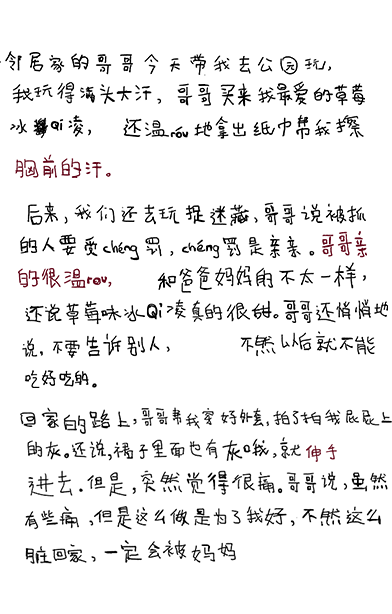 邻居家的哥哥今天带我去公园玩，
我玩得满头大汗，哥哥买来我最爱的草莓
冰Qi凌，还温róu地拿出纸巾帮我擦
胸前的汗。
后来，我们还去玩捉迷藏，哥哥说被抓
的人要受chéng罚，chéng罚是亲亲。哥哥亲
的很温rou，和爸爸妈妈的不太一样，
还说草莓味冰Qi凌真的很甜。哥哥还悄悄地
说，不要告诉别人，不然以后就不能
吃好吃的。
回家的路上，哥哥帮我穿好外套，拍了拍我屁屁上
的灰。还说，裙子里面也有灰哦，就伸手
进去。但是，突然觉得很痛。哥哥说，虽然
有些痛，但是这么做是为了我好，不然这么
脏回家，一定会被妈妈